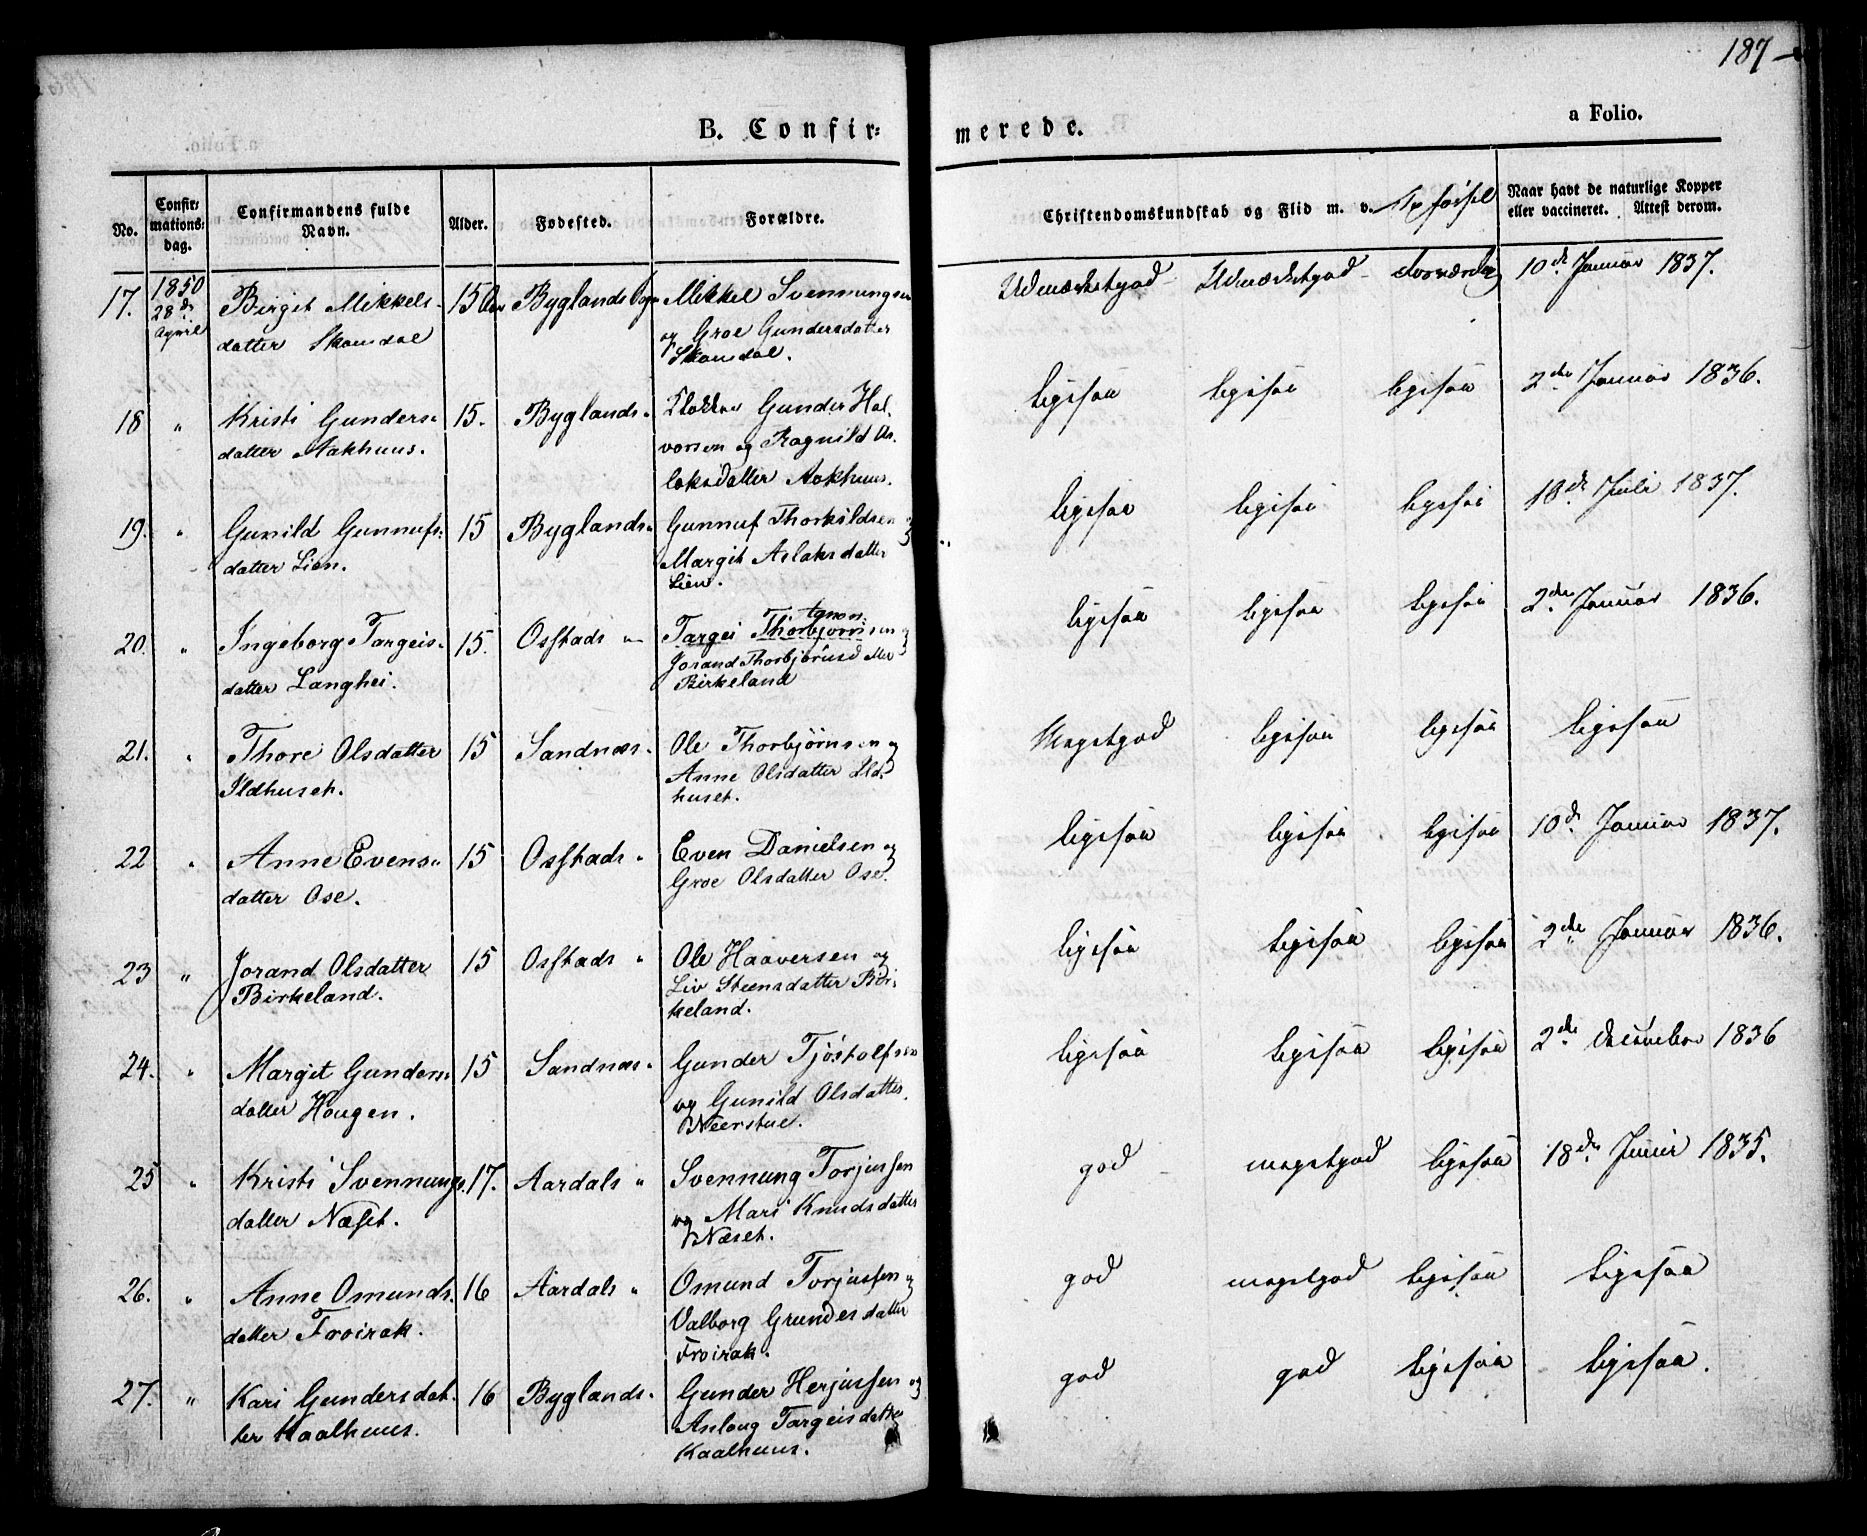 187
B. Confir-
merede.
a Folio.
No.
Confir-
mations-
dag.
Confirmandens fulde
Navn.
Alder.
Fødested.
Forældre.
Christendomskundskab og Flid m. v.
Opførsel
Naar havt de naturlige Kopper
eller vaccineret. Attest derom.
17.
1850
28de
April
Birgit Mikkels-
datter Skomedal
15 Aar
Byglands Sogn
Mikkel Svennungsen
og Groe Gundersdatter
Skomedal.
Udmærketgod
Udmærketgod
10de Januar 1837.
18
"
Kristi Gunders-
datter Aakhuus.
15.
Byglands "
Gunder Hal-
vorsen og Ragnild As-
laksdatter Aakhuus.
ligesaa
ligesaa
ligesaa
2den Januar 1836.
19.
"
Gunild Gunnufs-
datter Lien.
15
Byglands "
Gunnuf Thorkildsen og
Margit Aslaksdatter
Lien.
ligesaa
ligesaa
ligesaa
18de Juli 1837.
20.
"
Ingeborg Targeis-
datter Langhei.
15.
Osstads "
Targei Thorbjørnsen og
Jorand Thorbjørnsd
Birkeland
ligesaa
ligesaa
ligesaa
2den Januar 1836.
21.
"
Thore Olsdatter
Ildhuset.
15
Sandnæs "
Ole Thorbjørnsen og
Anne Olsdatter Ild-
huset.
Megetgod
ligesaa
ligesaa
ligesaa
22
"
Anne Evens-
datter Ose.
15
Osstads "
Even Danielsen og
Groe Olsdatter Ose.
ligesaa
ligesaa
ligesaa
10de Januar 1837.
23
"
Jorand Olsdatter
Birkeland.
15
Osstads "
Ole Haaversen og
Liv Steensdatter Bir-
keland.
ligesaa
ligesaa
ligesaa
2den Januar 1836.
24.
"
Margit Gunders-
datter Haugen.
15
Sandnæs "
Gunder Tjøstolfsen
og Gunild Olsdatter
Neerstue.
ligesaa
ligesaa
ligesaa
2den December 1836
25
"
Kristi Svennungs-
datter Næset.
17.
Aardals "
Svennung Torjussen
og Mari Knudsdatter
Næset.
god
megetgod
ligesaa
18de Junii 1835.
26.
"
Anne Omunds-
datter Froirak.
16
Aardals "
Omund Torjussen og
Valborg Grundesdatter
Froirak.
god
megetgod
ligesaa
ligesaa
27.
"
Kari Gundersdat-
ter Kaalhuus.
16
Byglands "
Gunder Herjussen og
Anloug Targeisdatter
Kaalhuus.
god
god
ligesaa
ligesaa.